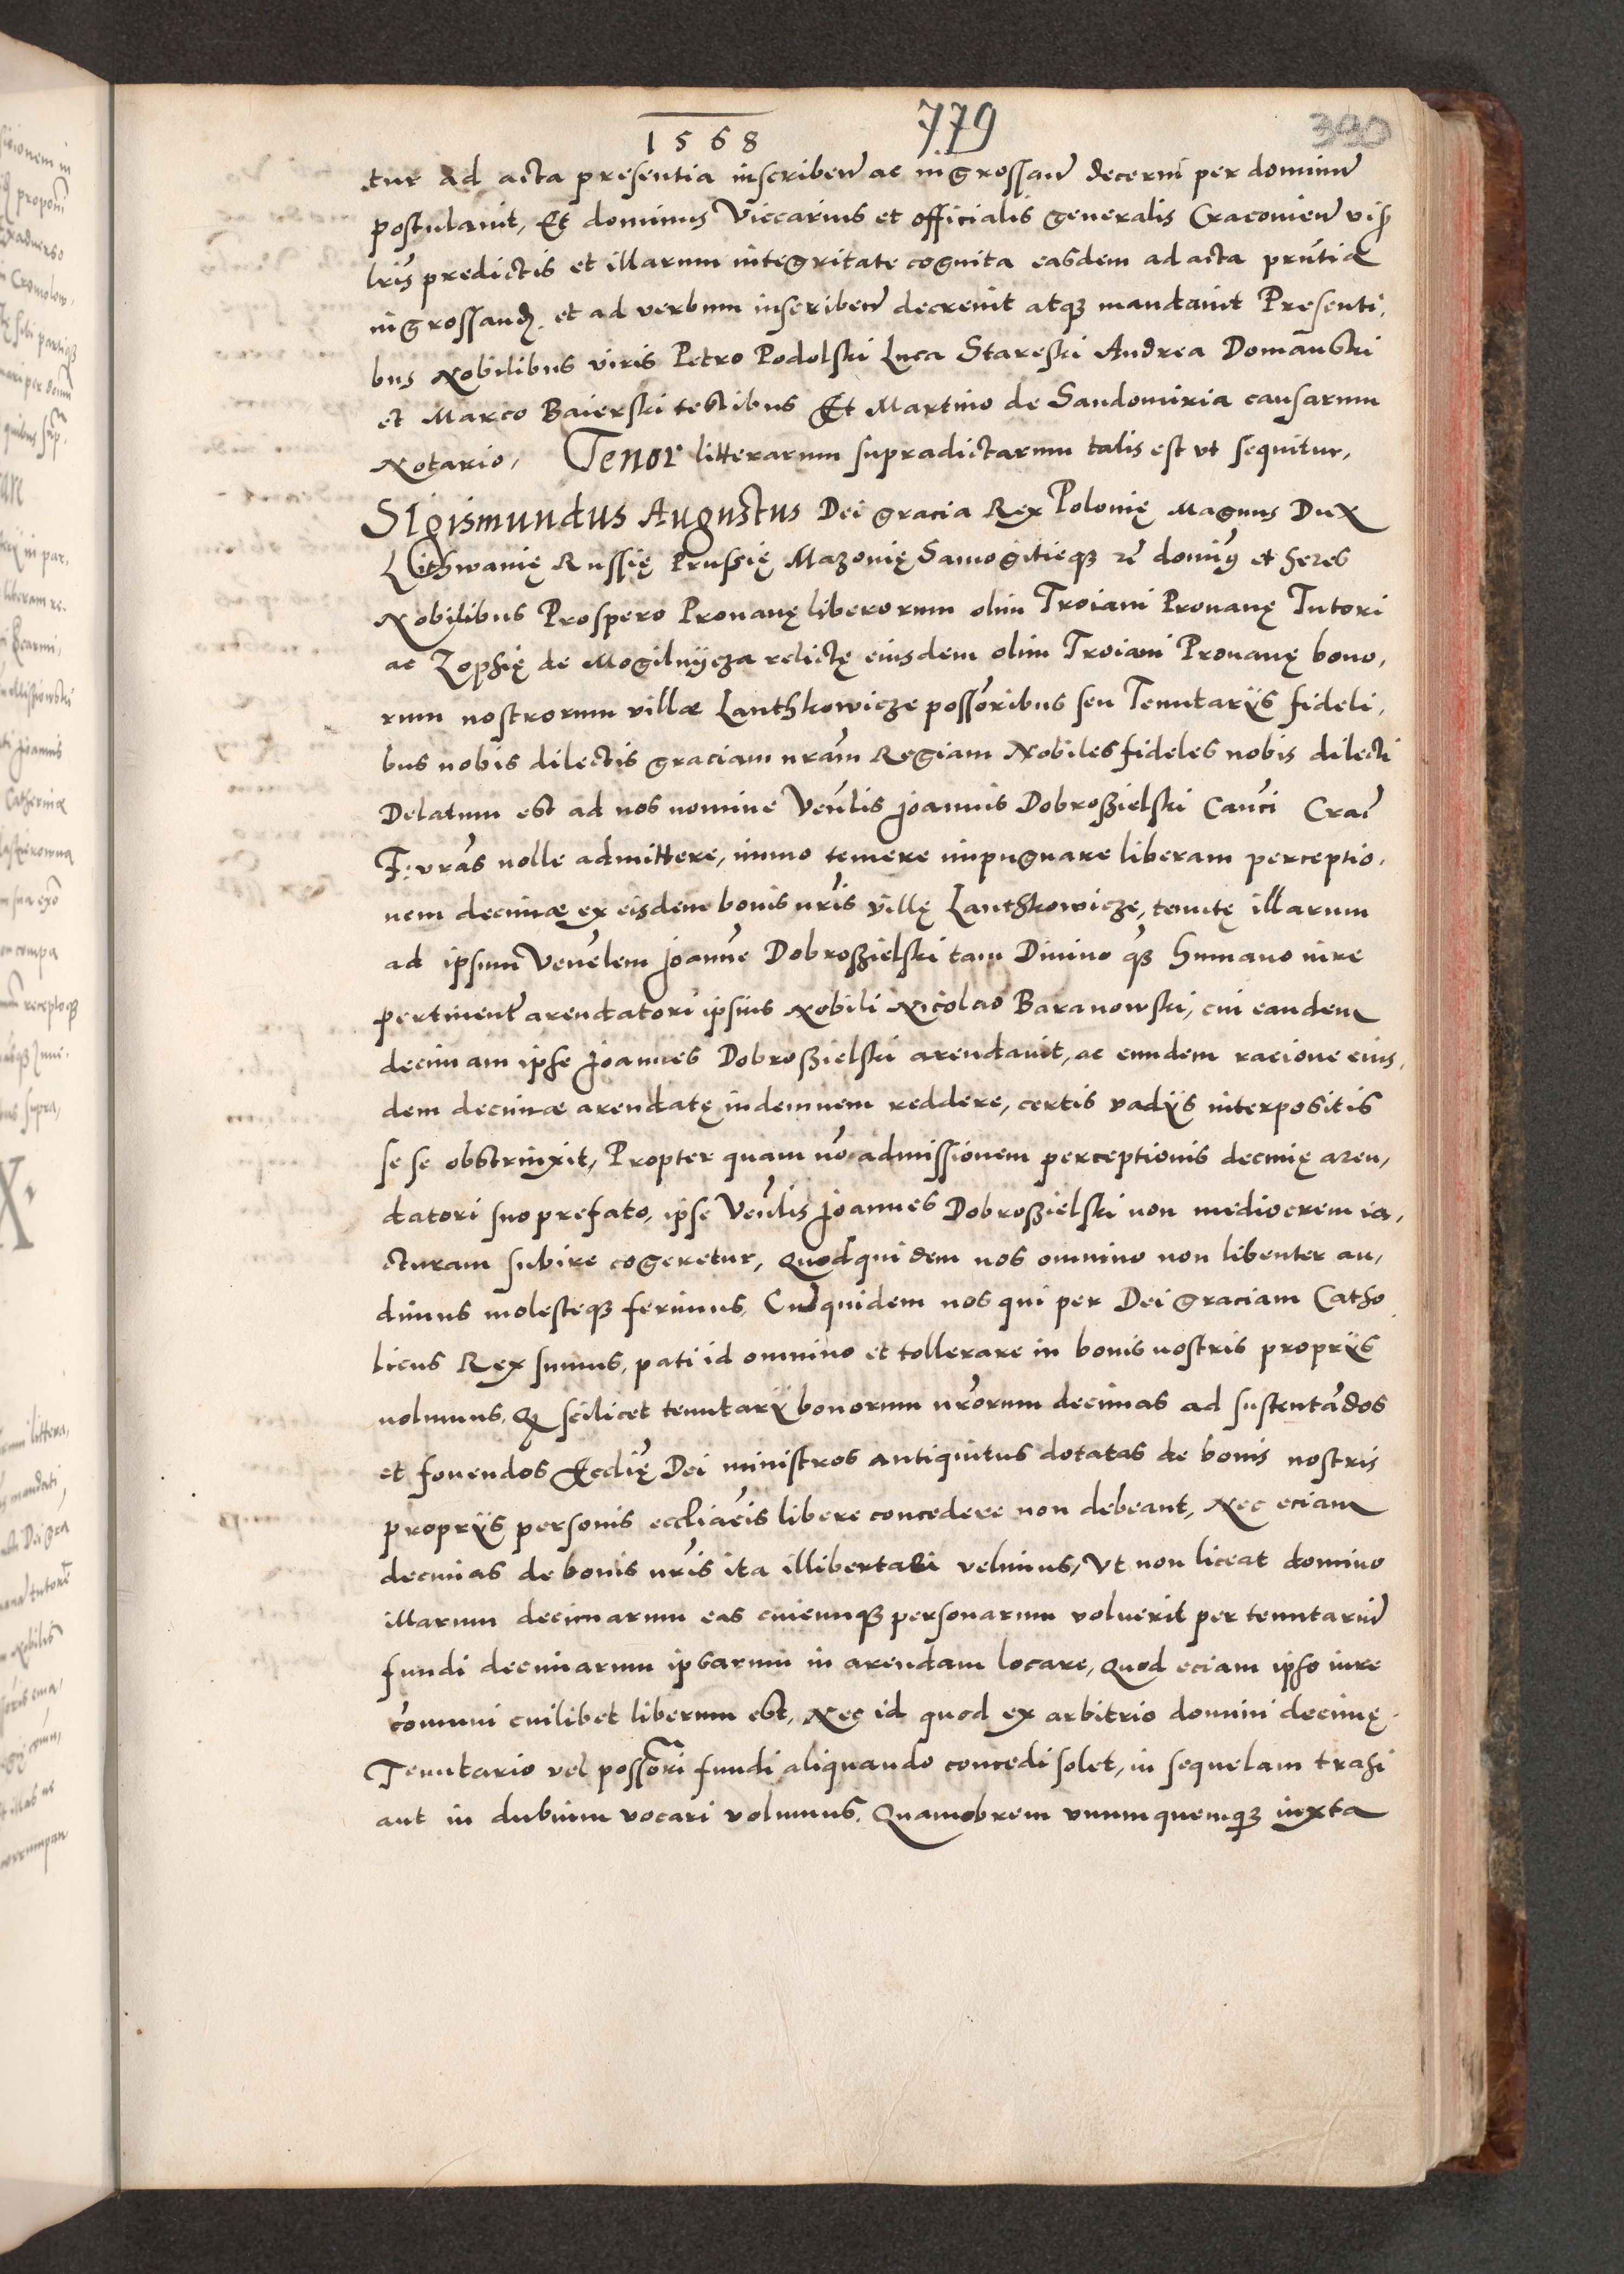 1568 779 390
tur ad acta presentia inscriben̄ ac ingrossan̄ decerni per dominū
postulauit, Et dominus Viccarius et officialis generalis Cracouien̄ visis
lr̄is predictis et illarum integritate cognita easdem ad acta pn̄tia
ingrossand. et ad verbum inscriben̄ decreuit atqꝫ mandauit Presenti,
bus Nobilibus viris Petro Podolski Luca Stareski Andrea Domanski
et Marco Baierski testibus Et Martino de Sandomiria causarum
Notario, Tenor litterarum supradictarum talis est vt sequitur,
Sigismundus Augustus Dei gracia Rex Polonię Magnus Dux
Lithwanię Russię Prussię Mazouię Samogitieqꝫ ꝛc̄ dominꝰ et heres
Nobilibus Prospero Prouanę liberorum olim Troiani Prouanę Tutori
ac Zophię de Mogilnijcza relictę eiusdem olim Troiani Prouanę bono,
rum nostrorum villæ Lanthkowicze possōribus seu Tenutarijs fideli,
bus nobis dilectis graciam nr̄am Regiam Nobiles fideles nobis dilecti
Delatum est ad nos nomine Ven̄lis Joannis Dobroßielski Can̄ci Crac̄
F: vr̄as nolle admittere, immo temere impugnare liberam perceptio,
nem decimæ ex eisdem bonis nr̄is villę Lanthkowicze, tenutę illarum
ad ipsum Ven̄lem Joannē Dobroßielski tam Diuino qꝫ humano iure
pertinen̄ arendatori ipsius Nobili Nicolao Baranowski, cui eandem
decimam ipse Joannes Dobroßielski arendauit, ac eundem racione eius,
dem decimæ arendatę indemnem reddere, certis vadijs interpositis
se se obstrinxit, Propter quam nō admissionem perceptionis decimę aren,
datori suo prefato, ipse Ven̄lis Joannes Dobroßielski non mediocrem ia,
cturam subire cogeretur, Quod quidem nos omnino non libenter au,
dimus molesteqꝫ ferimus, Cū quidem nos qui per Dei graciam Catho
licus Rex sumus, pati id omnino et tollerare in bonis nostris proprijs
nolumus, Qꝫ scilicet tenutarij bonorum nr̄orum decimas ad sustentādos
et fouendos Eccl̄ię Dei ministros antiquitus dotatas de bonis nostris
proprijs personis eccl̄iacis libere concedere non debeant, Nec eciam
decimas de bonis nr̄is ita illibertari velimus, Vt non liceat domino
illarum decimarum eas cuicunqꝫ personarum voluerit per tenutariū
fundi decimarum ipsarum in arendam locare, Quod eciam ipso iure
cōmuni cuilibet liberum est, Nec id quod ex arbitrio domini decimę
Tenutario vel possōri fundi aliquando concedi solet, in sequelam trahi
aut in dubium vocari volumus. Quamobrem vnumquemqꝫ iuxta